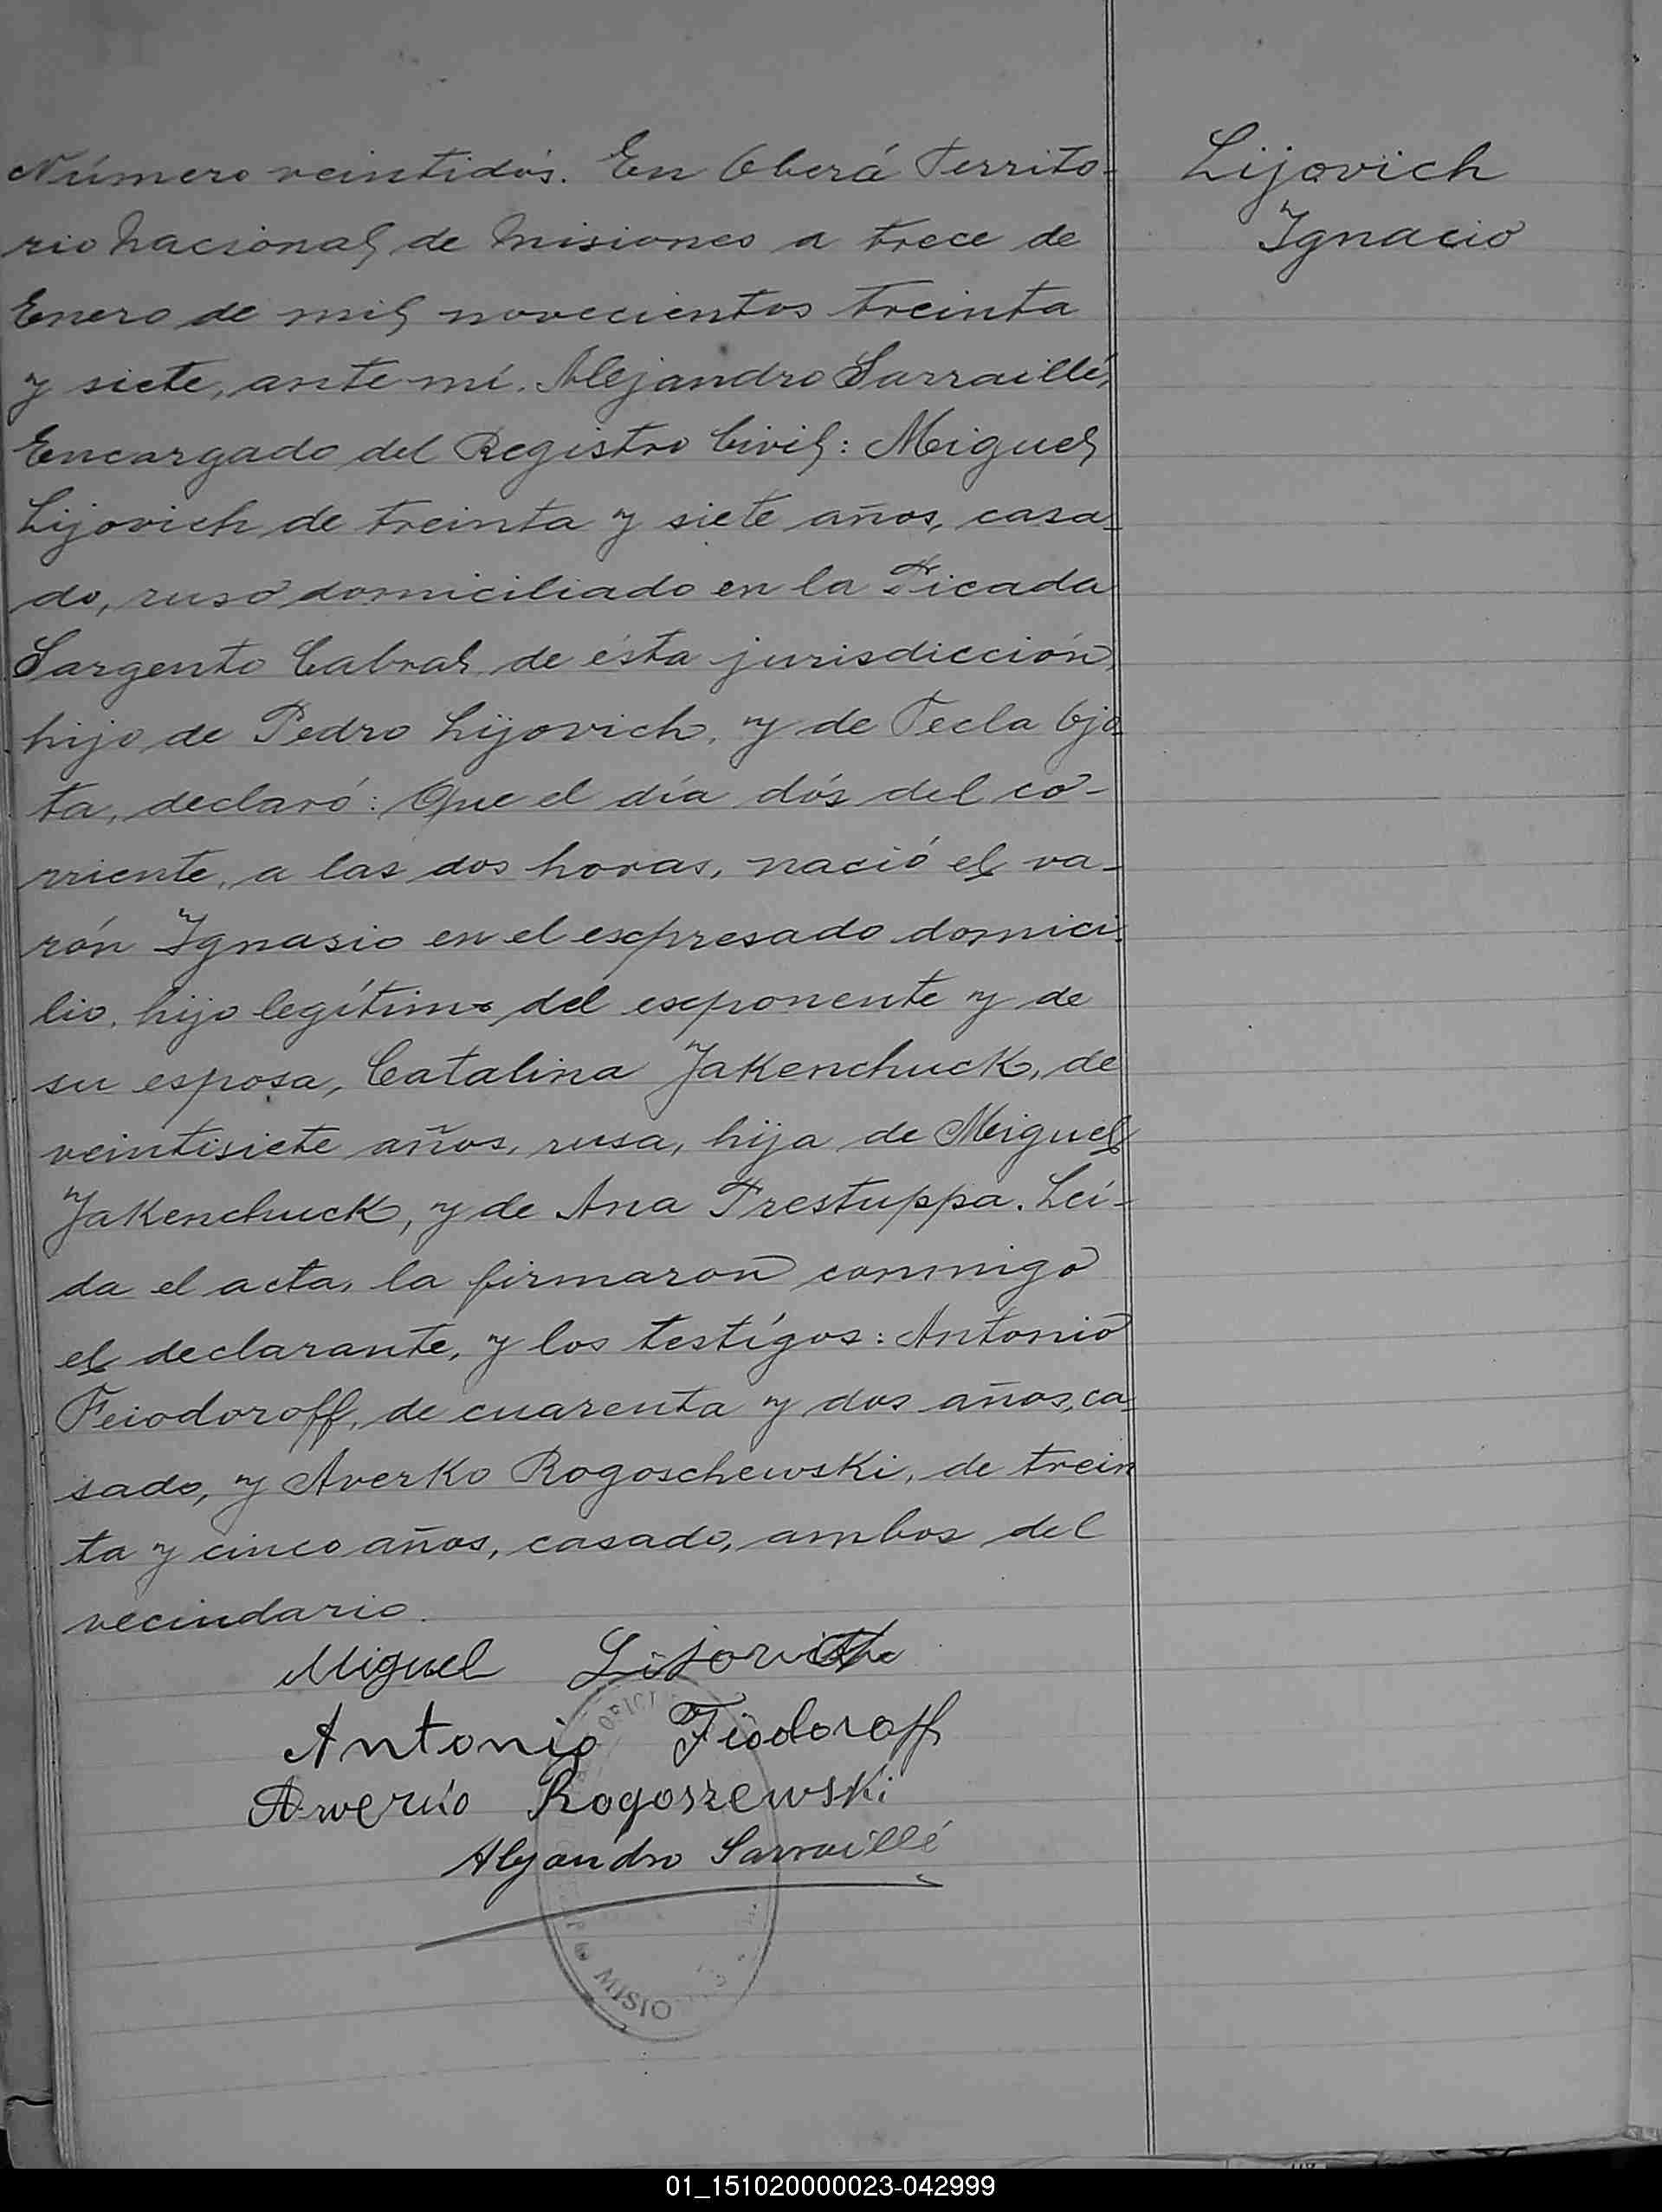 Número veintidós. En Oberá Territo-
rio Nacional de Misiones a trece de
Enero de mil novecientos treinta
y siete, ante mí. Alejandro Sarraillé,
Encargado del Registro Civil: Miguel
Lijovich de treinta y siete años, casa-
do, ruso domiciliado en la Picada
Sargento Cabral de ésta jurisdicción,
hijo de Pedro Lijovich, y de Tecla Ojo
ta, declaró: Que el día dós del co-
rriente, a las dos horas, nació el va-
rón Ignasio en el expresado domici-
lio, hijo legítimo del exponente y de
su esposa, Catalina Jakenchuck, de
veintisiete años, rusa, hija de Miguel
Jakenchuck, y de Ana Trestuppa. Leí-
da el acta, la firmaron conmigo
el declarante, y los testígos: Antonio
Feiodoroff, de cuarenta y dos años, ca-
sado, y Averko Rogoschewski, de trein
ta y cinco años, casado, ambos del
vecindario.
Miguel Lijovich
Antonio Fiodoroff
Rogoszewski
Alejandro Sarraillé
OFICI
MISIO
Lijovich
Ignacio
01_151020000023-042999